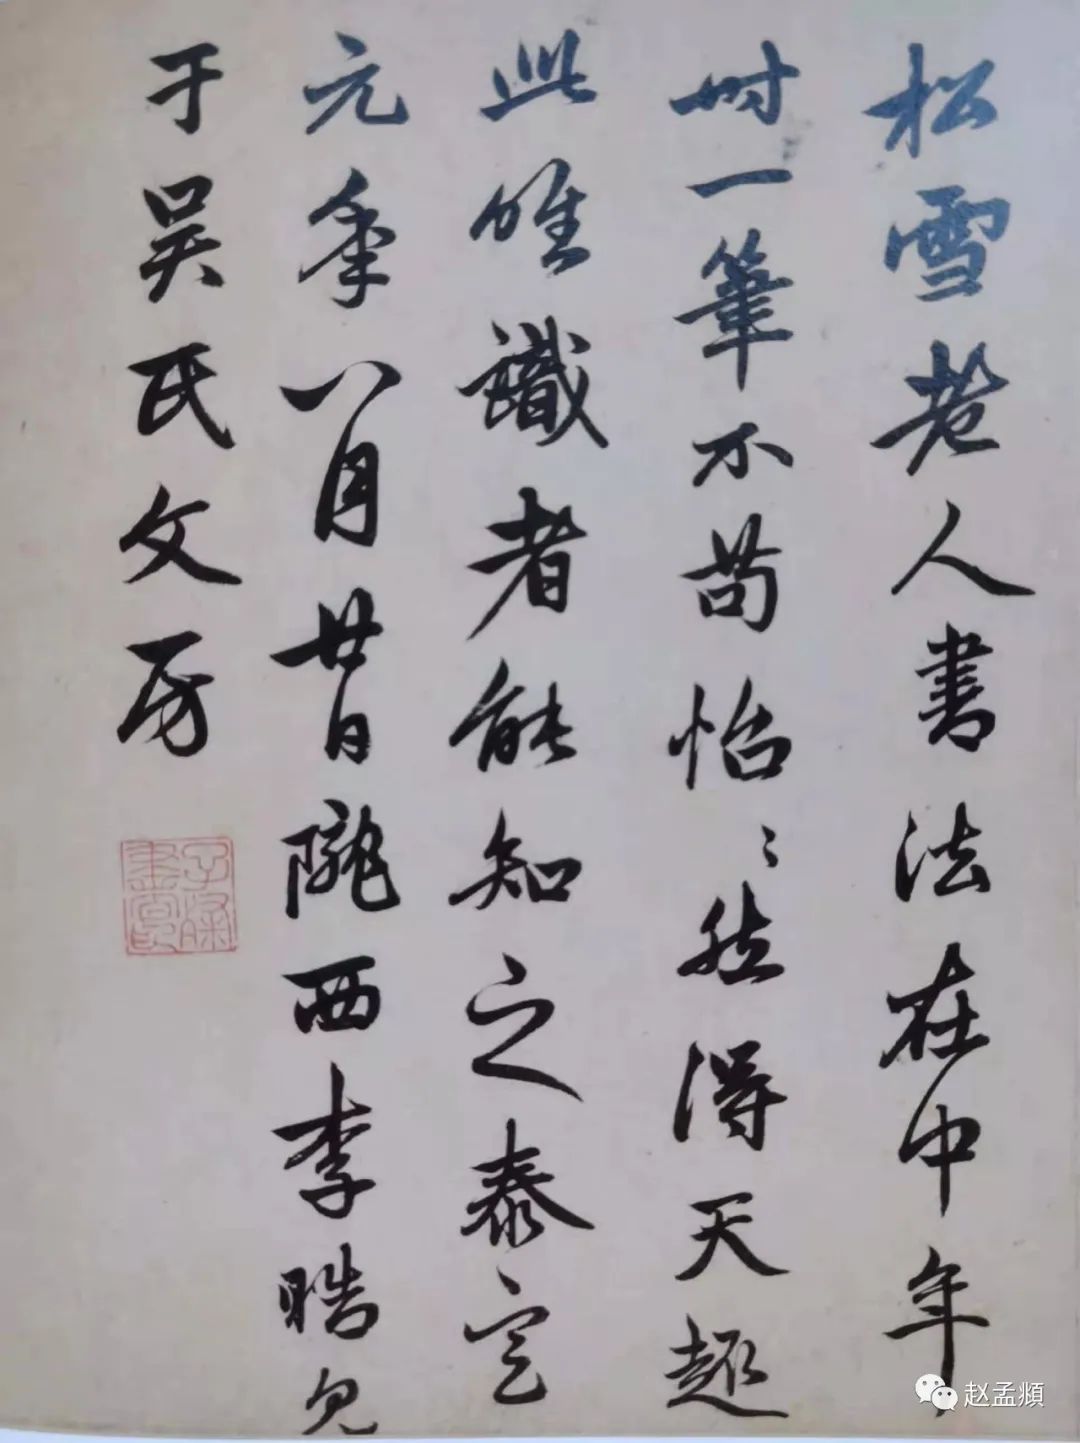 松雪老人書法在中年
时一筆不苟怡〻然得天趣
此唯識者能知之泰定
元年八月廿日隴西李晧見
于吴氏文房
赵孟頫